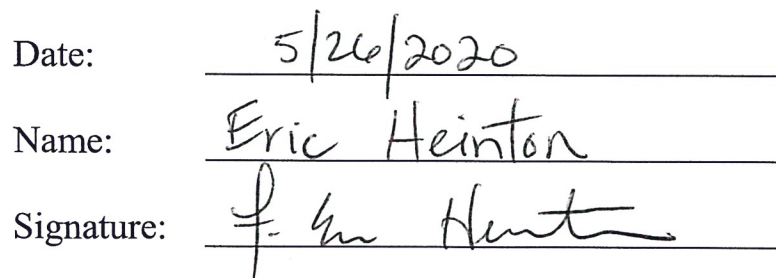 Date: 5/26/2020
Name: Eric Heinton
Signature: